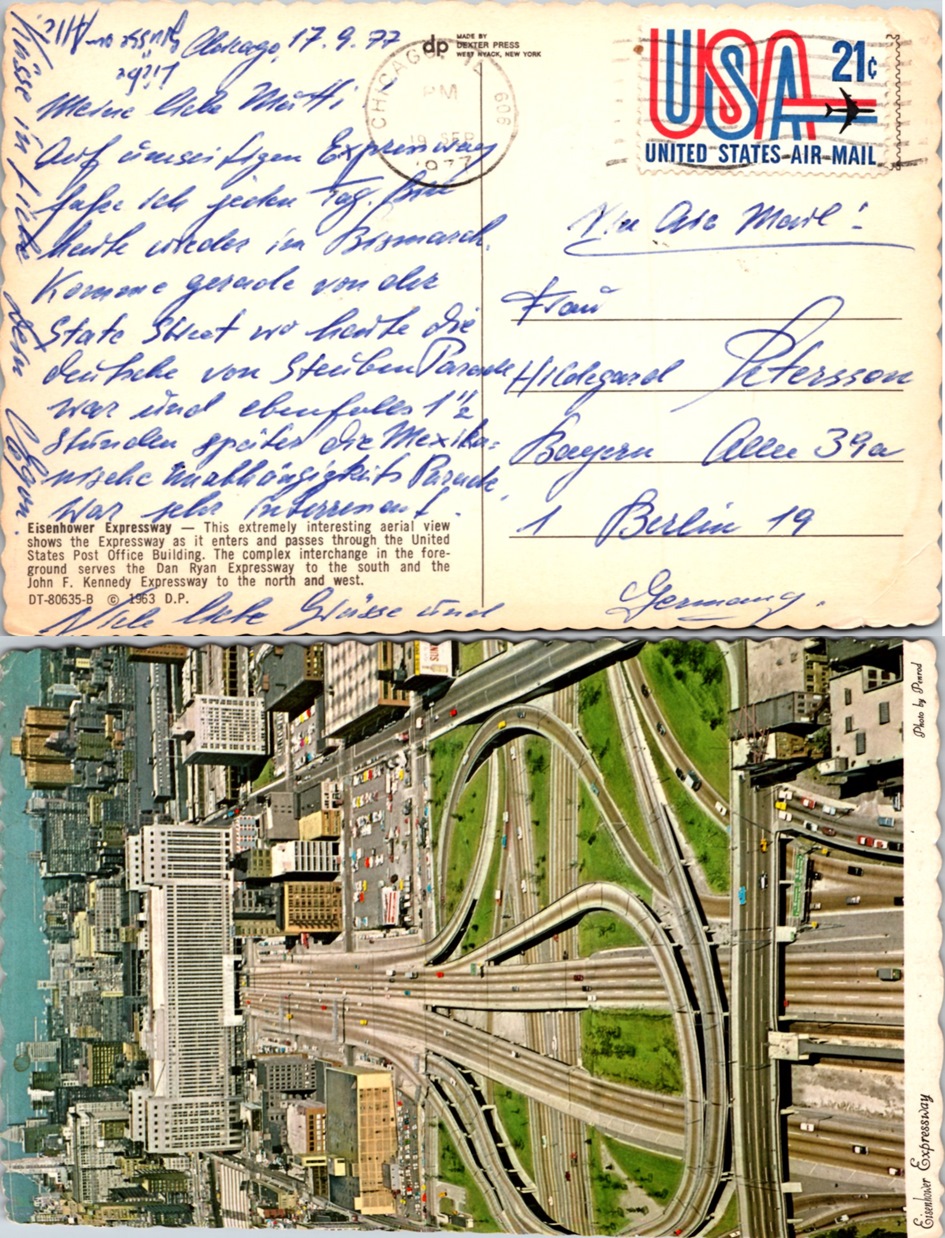 Chicago, 17.9.77
Meine liebe Mutti
Auf umseitigen Expressway
fahre ich jeden Tag. Bin
heute wieder im Bismarck.
Komme gerade von der
State Street wo heute die
deutsche von Steuben Parade
war und ebenfalls 1 1/2
Stunden später die Mexika=
nische Unabhängigkeits Parade.
War sehr interessant.
Viele liebe Grüsse und
Küsse in Liebe Dein
Liebe
Grüsse an Alle
MADE BY
dp DEXTER PRESS
WEST NYACK, NEW YORK
CHICAGO, IL 606
PM
19 SEP
1977
USA 21¢
UNITED STATES AIR MAIL
Via Air Mail!
Frau
Hildegard Petersson
Bayern Allee 39a
1 Berlin 19
Germany.
Eisenhower Expressway — This extremely interesting aerial view
shows the Expressway as it enters and passes through the United
States Post Office Building. The complex interchange in the fore-
ground serves the Dan Ryan Expressway to the south and the
John F. Kennedy Expressway to the north and west.
DT-80635-B © 1963 D.P.
Photo by Penrod
Eisenhower Expressway